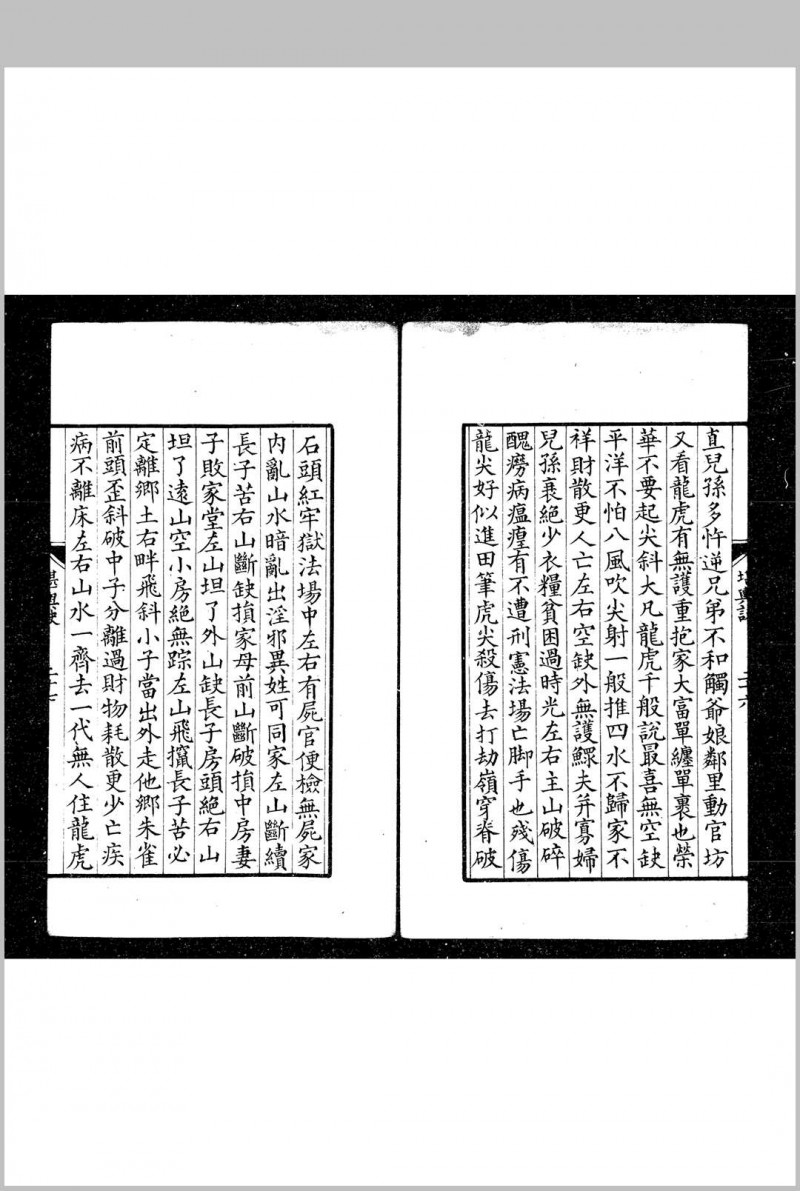 直兒孫多忤逆兄弟不和觸爺娘鄰里動官坊
又看龍虎有無護重抱家大富單纏單裹也榮
華不要起尖斜大凡龍虎千般說最喜無空缺
平洋不怕八風吹尖射一般推四水不歸家不
祥財散更人亡左右空缺外無護鰥夫并寡婦
兒孫衰絕少衣糧貧困過時光左右主山破碎
醜癆病瘟𤯝有不遭刑憲法場亡脚手也殘傷
龍尖好似進田筆虎尖殺傷去打劫嶺穿脊破
石頭紅牢獄法場中左右有屍官便檢無屍家
內亂山水暗亂出淫邪異姓可同家左山斷續
長子苦右山斷缺損家母前山斷破損中房妻
子敗家堂左山坦了外山缺長子房頭絕右山
坦了遠山空小房絕無踪左山飛竄長子苦必
定離鄉土右畔飛斜小子當出外走他鄉朱雀
前頭歪斜破中子分離過財物耗散更少亡疾
病不離床左右山水一齊去一代無人住龍虎